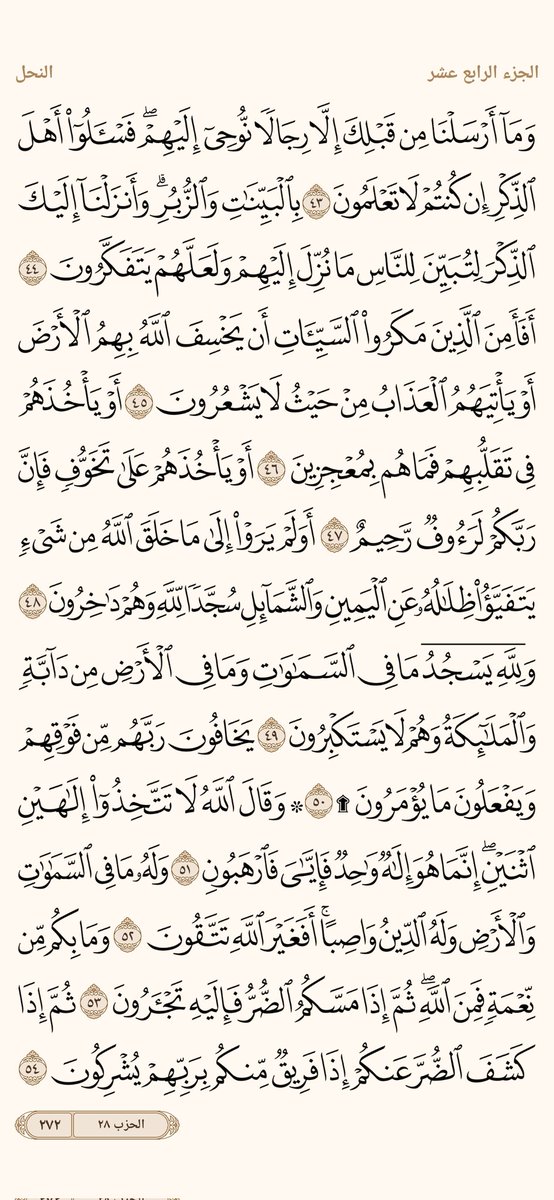 الجزء الرابع عشر
النحل
وَمَآ أَرۡسَلۡنَا مِن قَبۡلِكَ إِلَّا رِجَالٗا نُّوحِيٓ إِلَيۡهِمۡۖ فَسۡـَٔلُوٓاْ أَهۡلَ
ٱلذِّكۡرِ إِن كُنتُمۡ لَا تَعۡلَمُونَ ٤٣ بِٱلۡبَيِّنَٰتِ وَٱلزُّبُرِۗ وَأَنزَلۡنَآ إِلَيۡكَ
ٱلذِّكۡرَ لِتُبَيِّنَ لِلنَّاسِ مَا نُزِّلَ إِلَيۡهِمۡ وَلَعَلَّهُمۡ يَتَفَكَّرُونَ ٤٤
أَفَأَمِنَ ٱلَّذِينَ مَكَرُواْ ٱلسَّيِّـَٔاتِ أَن يَخۡسِفَ ٱللَّهُ بِهِمُ ٱلۡأَرۡضَ
أَوۡ يَأۡتِيَهُمُ ٱلۡعَذَابُ مِنۡ حَيۡثُ لَا يَشۡعُرُونَ ٤٥ أَوۡ يَأۡخُذَهُمۡ
فِي تَقَلُّبِهِمۡ فَمَا هُم بِمُعۡجِزِينَ ٤٦ أَوۡ يَأۡخُذَهُمۡ عَلَىٰ تَخَوُّفٖ فَإِنَّ
رَبَّكُمۡ لَرَءُوفٞ رَّحِيمٌ ٤٧ أَوَلَمۡ يَرَوۡاْ إِلَىٰ مَا خَلَقَ ٱللَّهُ مِن شَيۡءٖ
يَتَفَيَّؤُاْ ظِلَٰلُهُۥ عَنِ ٱلۡيَمِينِ وَٱلشَّمَآئِلِ سُجَّدٗا لِّلَّهِ وَهُمۡ دَٰخِرُونَ ٤٨
وَلِلَّهِۤ يَسۡجُدُۤ مَا فِي ٱلسَّمَٰوَٰتِ وَمَا فِي ٱلۡأَرۡضِ مِن دَآبَّةٖ
وَٱلۡمَلَٰٓئِكَةُ وَهُمۡ لَا يَسۡتَكۡبِرُونَ ٤٩ يَخَافُونَ رَبَّهُم مِّن فَوۡقِهِمۡ
وَيَفۡعَلُونَ مَا يُؤۡمَرُونَ۩ ٥٠ ۞ وَقَالَ ٱللَّهُ لَا تَتَّخِذُوٓاْ إِلَٰهَيۡنِ
ٱثۡنَيۡنِۖ إِنَّمَا هُوَ إِلَٰهٞ وَٰحِدٞ فَإِيَّٰيَ فَٱرۡهَبُونِ ٥١ وَلَهُۥ مَا فِي ٱلسَّمَٰوَٰتِ
وَٱلۡأَرۡضِ وَلَهُ ٱلدِّينُ وَاصِبًاۚ أَفَغَيۡرَ ٱللَّهِ تَتَّقُونَ ٥٢ وَمَا بِكُم مِّن
نِّعۡمَةٖ فَمِنَ ٱللَّهِۖ ثُمَّ إِذَا مَسَّكُمُ ٱلضُّرُّ فَإِلَيۡهِ تَجۡـَٔرُونَ ٥٣ ثُمَّ إِذَا
كَشَفَ ٱلضُّرَّ عَنكُمۡ إِذَا فَرِيقٞ مِّنكُم بِرَبِّهِمۡ يُشۡرِكُونَ ٥٤
الحزب ٢٨
٢٧٢